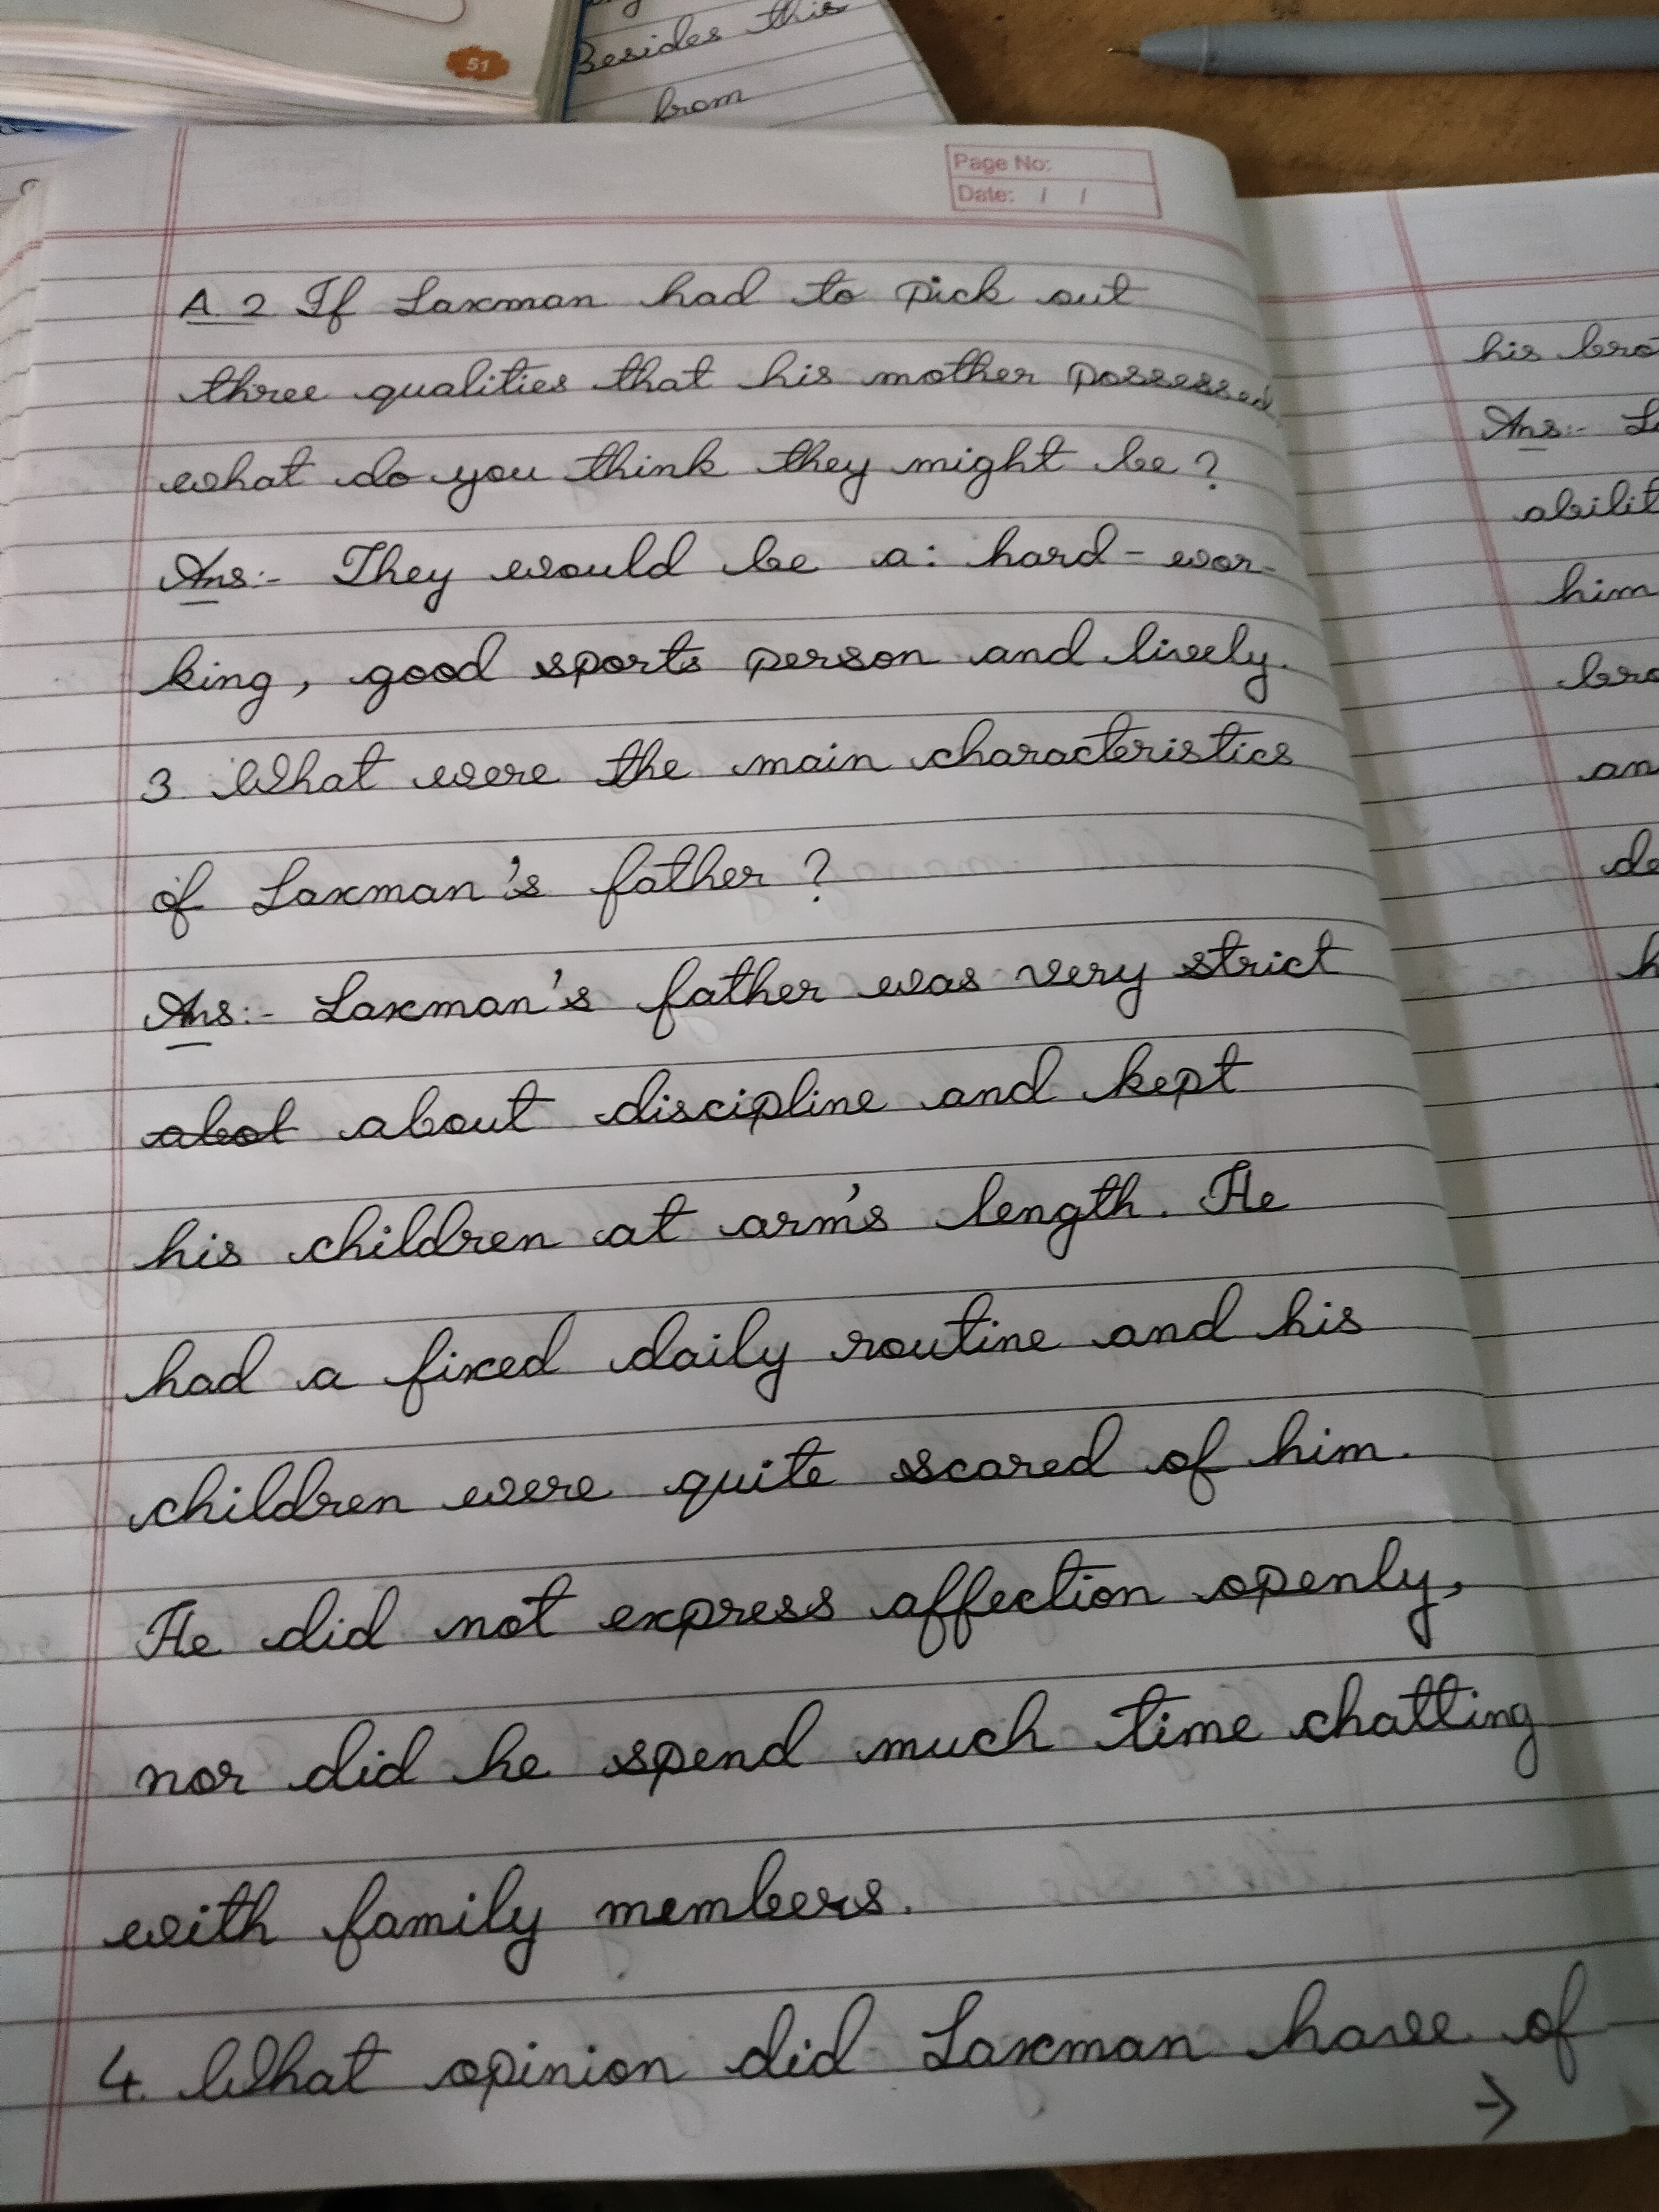 51
Besides this
from
Page No:
Date: / /
A. 2 If Laxman had to pick out
three qualities that his mother possessed,
what do you think they might be?
Ans:- They would be a: hard-wor-
king, good sports person and lively.
3. What were the main characteristics
of Laxman's father?
Ans:- Laxman's father was very strict
abot about discipline and kept
his children at arm's length. He
had a fixed daily routine and his
children were quite scared of him.
He did not express affection openly,
nor did he spend much time chatting
with family members.
4. What opinion did Laxman have of
→
his bro
Ans:- L
abilit
him
bro
an
de
h